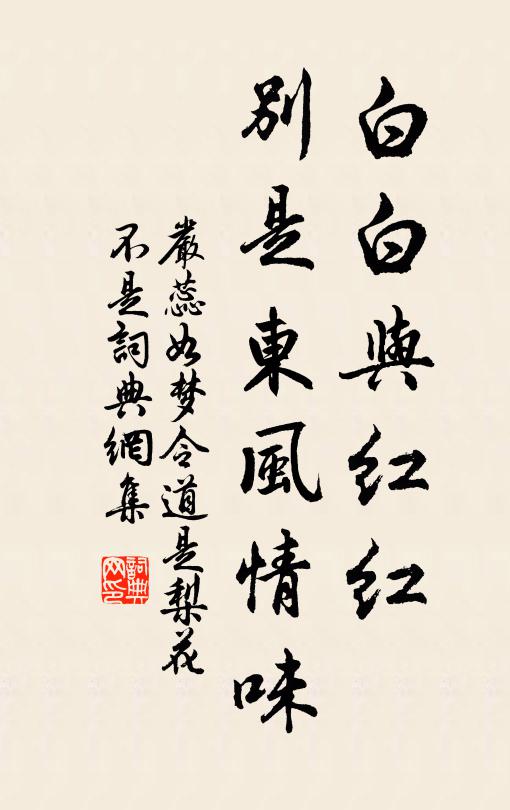 白白與紅紅
別是東風情味
嚴蕊如梦令道是梨花
不是詞典網集
詞典网印